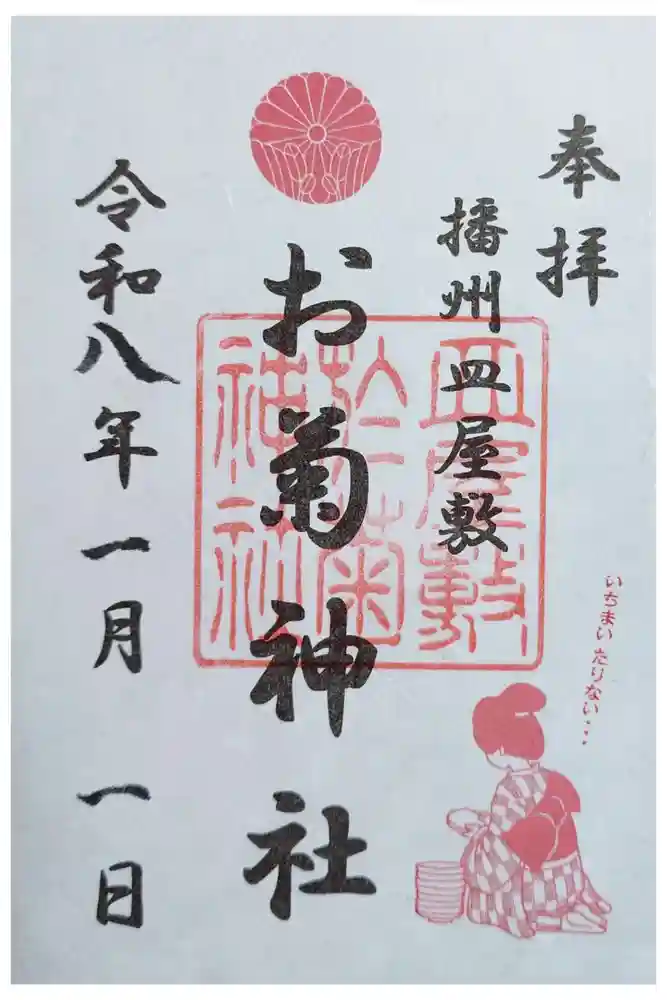 奉拝
播州皿屋敷
お菊神社
令和八年一月一日
皿屋敷
於菊
神社
いちまい たりない・・・